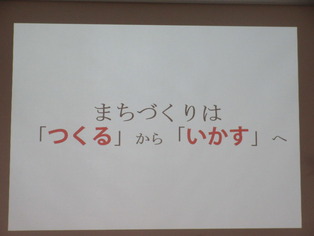 まちづくりは
「つくる」から「いかす」へ